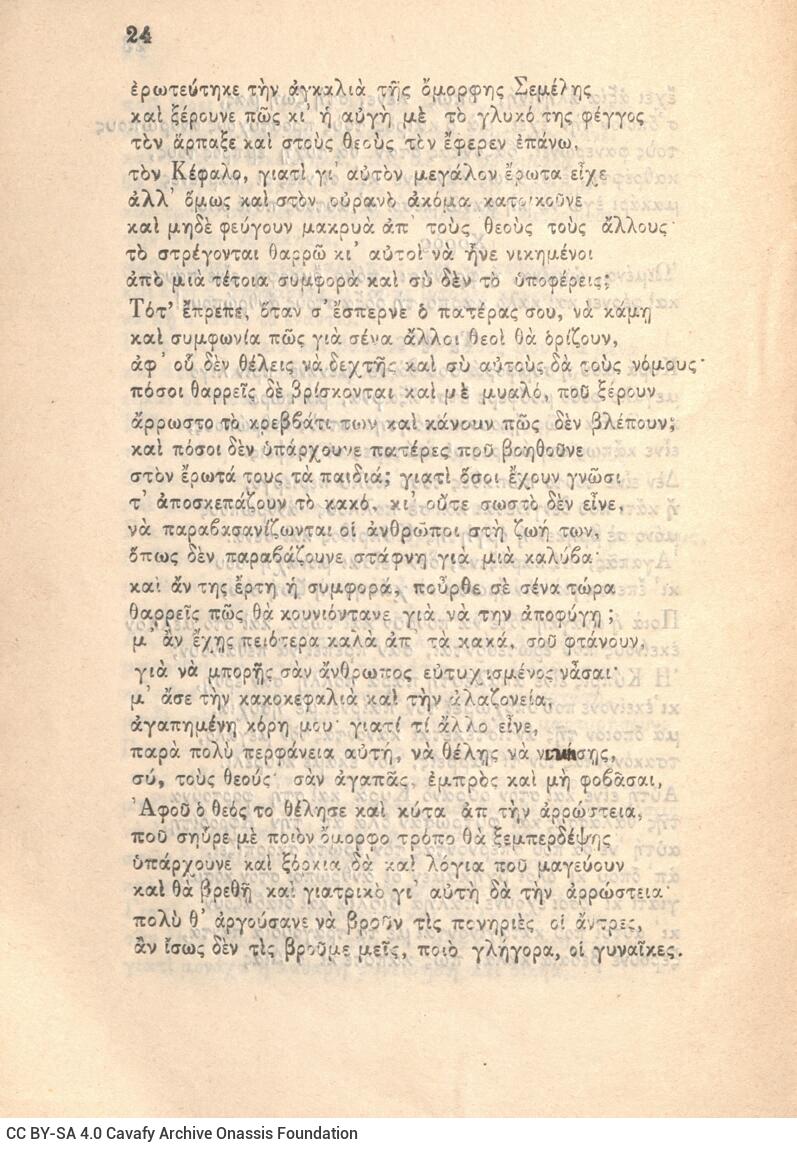 24
ἐρωτεύτηκε τὴν ἀγκαλιὰ τῆς ὄμορφης Σεμέλης
καὶ ξέρουνε πῶς κι' ἡ αὐγὴ μὲ τὸ γλυκό της φέγγος
τὸν ἅρπαξε καὶ στοὺς θεοὺς τὸν ἔφερεν ἐπάνω,
τὸν Κέφαλο, γιατὶ γι' αὐτὸν μεγάλον ἔρωτα εἶχε
ἀλλ' ὅμως καὶ στὸν οὐρανὸ ἀκόμα κατοικοῦνε
καὶ μηδὲ φεύγουν μακρυὰ ἀπ' τοὺς θεοὺς τοὺς ἄλλους·
τὸ στρέγονται θαρρῶ κι' αὐτοὶ νὰ ἦνε νικημένοι
ἀπὸ μιὰ τέτοια συμφορὰ καὶ σὺ δὲν τὸ ὑποφέρεις;
Τότ' ἔπρεπε, ὅταν σ' ἔσπερνε ὁ πατέρας σου, νὰ κάμη
καὶ συμφωνία πῶς γιὰ σένα ἄλλοι θεοὶ θὰ ὁρίζουν,
ἀφ' οὗ δὲν θέλεις νὰ δεχτῆς καὶ σὺ αὐτοὺς δὰ τοὺς νόμους·
πόσοι θαρρεῖς δὲ βρίσκονται καὶ μὲ μυαλό, ποῦ ξέρουν
ἄρρωστο τὸ κρεββάτι των καὶ κάνουν πῶς δὲν βλέπουν;
καὶ πόσοι δὲν ὑπάρχουνε πατέρες ποῦ βοηθοῦνε
στὸν ἔρωτά τους τὰ παιδιά; γιατὶ ὅσοι ἔχουν γνῶσι
τ' ἀποσκεπάζουν τὸ κακό, κι' οὔτε σωστὸ δὲν εἶνε,
νὰ παραβασανίζωνται οἱ ἀνθρῶποι στὴ ζωή των,
ὅπως δὲν παραβάζουνε στάφνη γιὰ μιὰ καλύβα·
καὶ ἄν της ἔρτη ἡ συμφορά, ποὖρθε σὲ σένα τώρα
θαρρεῖς πῶς θὰ κουνιόντανε γιὰ νὰ την ἀποφύγη;
μ' ἀν ἔχῃς πειότερα καλὰ ἀπ' τὰ κακά, σοῦ φτάνουν,
γιὰ νὰ μπορῇς σὰν ἄνθρωπος εὐτυχισμένος νἆσαι·
μ' ἄσε τὴν κακοκεφαλιὰ καὶ τὴν ἀλαζονεία,
ἀγαπημένη κόρη μου· γιατί τί ἄλλο εἶνε,
παρὰ πολὺ περφάνεια αὐτή, νὰ θέλῃς νὰ νικήσῃς,
σύ, τοὺς θεούς· σὰν ἀγαπᾶς, ἐμπρὸς καὶ μὴ φοβᾶσαι,
Ἀφοῦ ὁ θεός το θέλησε καὶ κύτα ἀπ τὴν ἀρρώστεια,
ποῦ σηὖρε μὲ ποιὸν ὄμορφο τρόπο θὰ ξεμπερδέψῃς
ὑπάρχουνε καὶ ξόρκια δὰ καὶ λόγια ποῦ μαγεύουν
καὶ θὰ βρεθῇ καὶ γιατρικὸ γι' αὐτὴ δὰ τὴν ἀρρώστεια·
πολὺ θ' ἀργούσανε νὰ βροῦν τὶς πονηριὲς οἱ ἄντρες,
ἂν ἴσως δὲν τὶς βροῦμε μεῖς, ποιὸ γλήγορα, οἱ γυναῖκες.
CC BY-SA 4.0 Cavafy Archive Onassis Foundation